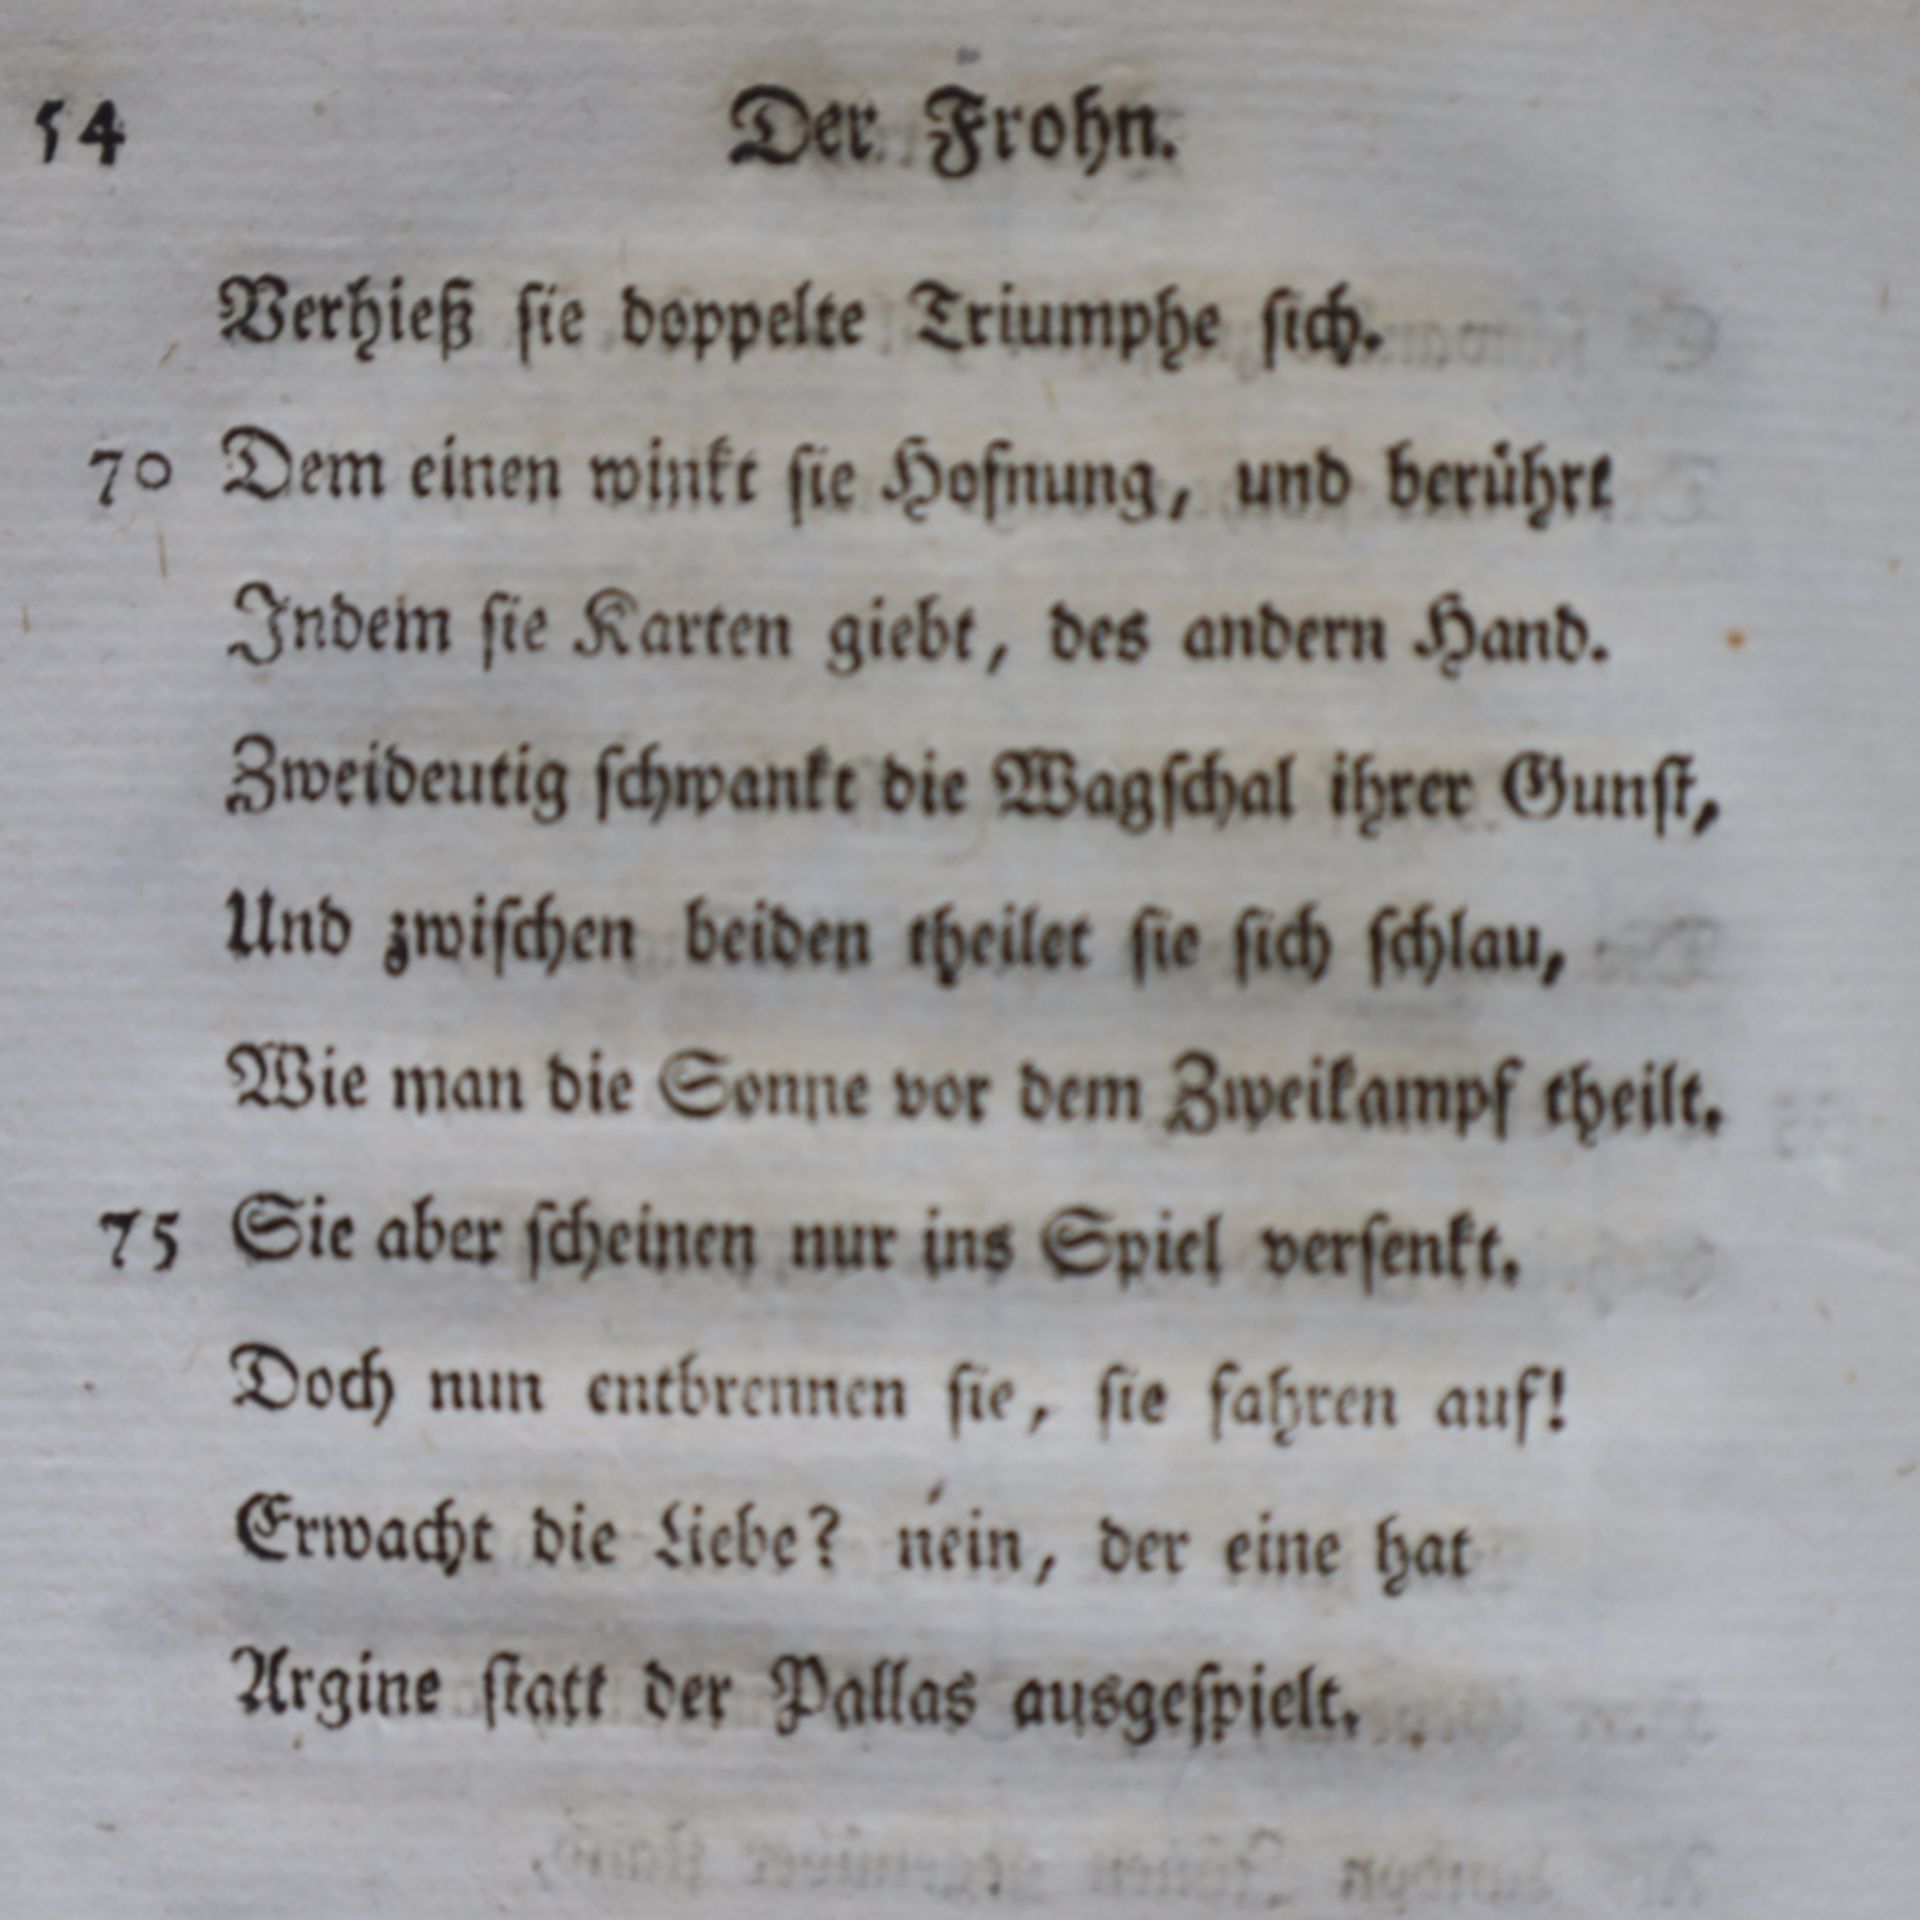 54 Der Frohn.
Verhieß ſie doppelte Triumphe ſich.
70 Dem einen winkt ſie Hofnung, und berührt
Indem ſie Karten giebt, des andern Hand.
Zweideutig ſchwankt die Wagſchal ihrer Gunſt,
Und zwiſchen beiden theilet ſie ſich ſchlau,
Wie man die Sonne vor dem Zweikampf theilt.
75 Sie aber ſcheinen nur ins Spiel verſenkt.
Doch nun entbrennen ſie, ſie fahren auf!
Erwacht die Liebe? nein, der eine hat
Argine ſtatt der Pallas ausgeſpielt.